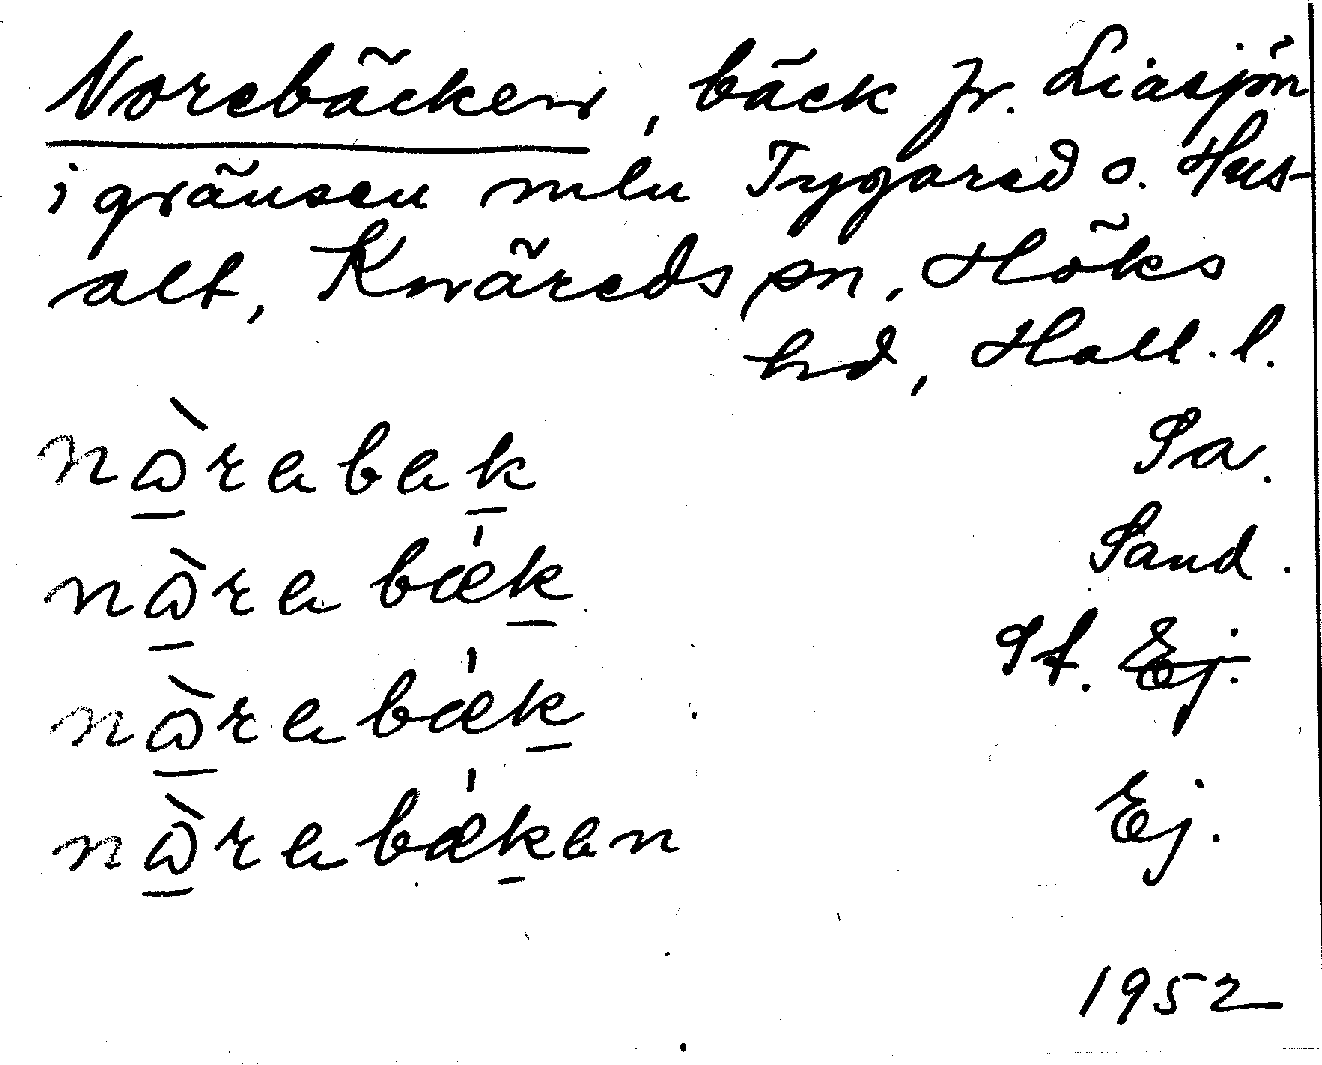 Norebäcken, bäck fr. Liasjön
i gränsen mln Tygared o. Hus-
alt, Knäreds sn, Höks
hd, Hall. l.
nàrebek Sa.
nàrebæk Sand.
nàrebæk St. Ej.
nàrebækən Ej.
1952